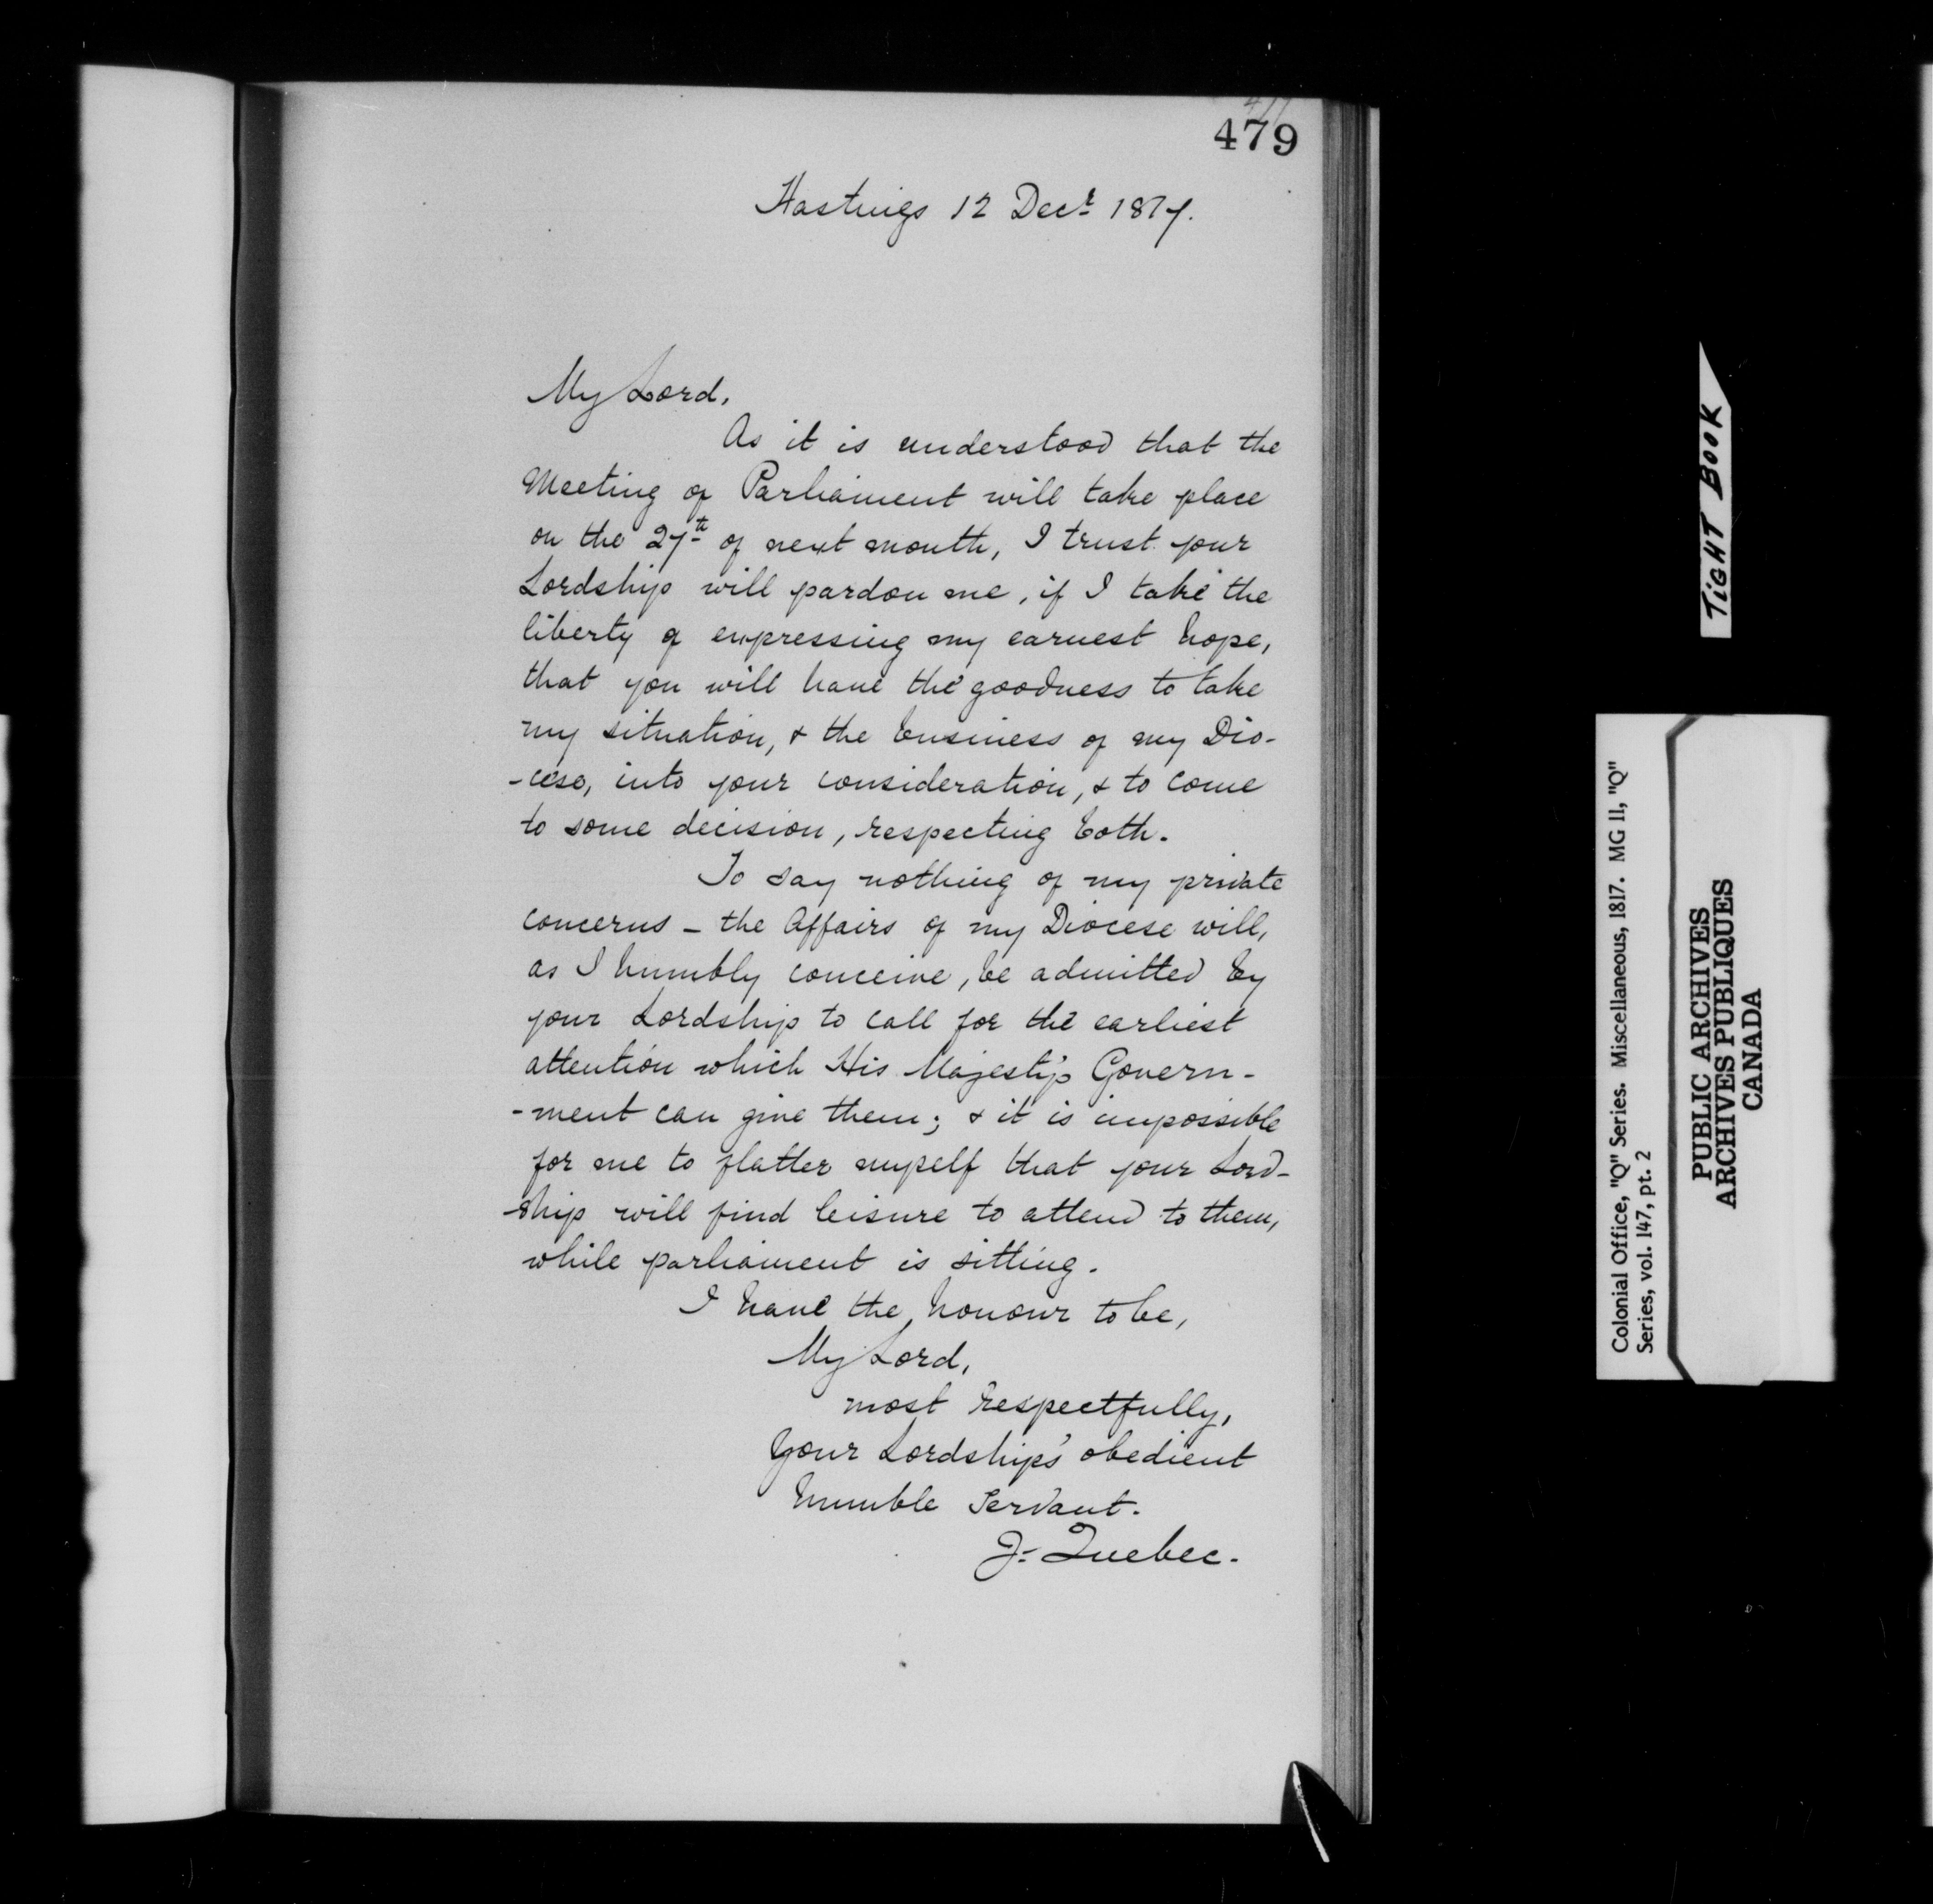 479
Hastings 12 Decr 1817.
My Lord,
As it is understood that the
Meeting of Parliament will take place
on the 27th of next month, I trust your
Lordship will pardon me, if I take the
liberty of expressing my earnest hope,
that you will have the goodness to take
my situation, & the business of my Dio-
-cese, into your consideration, & to come
to some decision, respecting both.
To say nothing of my private
concerns – the Affairs of my Diocese will,
as I humbly conceive, be admitted by
your Lordship to call for the earliest
attention which His Majesty's Govern-
-ment can give them; & it is impossible
for me to flatter myself that your Lord-
-ship will find leisure to attend to them,
while parliament is sitting.
I have the honour to be,
My Lord,
most respectfully,
Your Lordship's obedient
humble Servant.
J. Quebec.
TIGHT BOOK
Colonial Office, "Q" Series. Miscellaneous, 1817. MG 11, "Q"
Series, vol. 147, pt. 2
PUBLIC ARCHIVES
ARCHIVES PUBLIQUES
CANADA